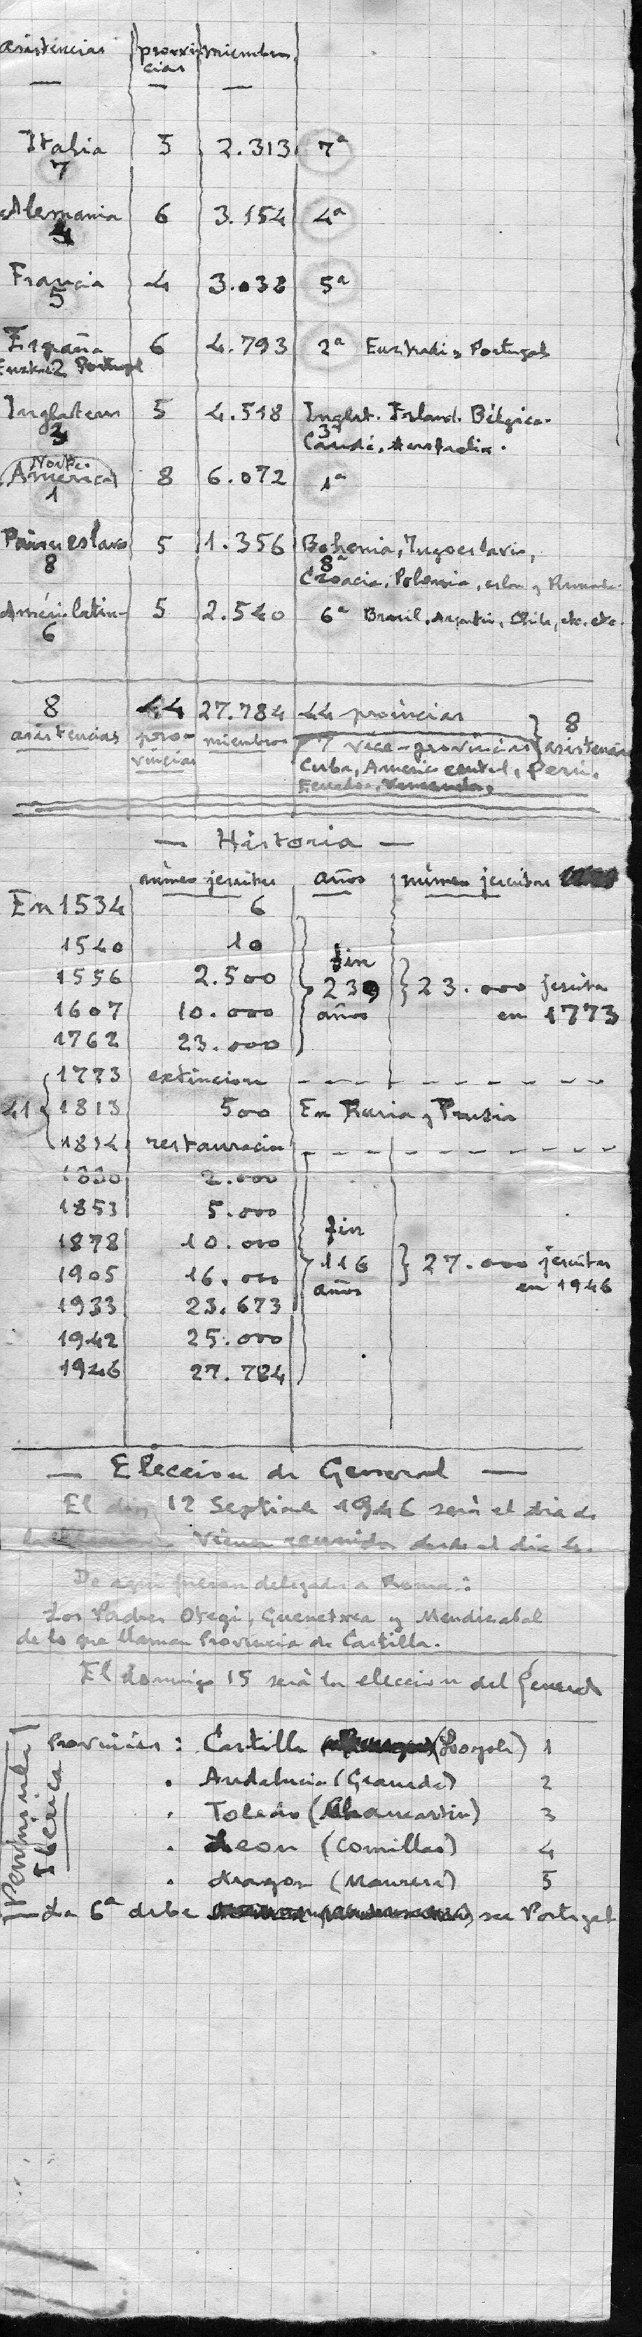 asistencias provin miembros
cias
Italia 5 2.313 7ª
7
Alemania 6 3.154 4ª
4
Francia 4 3.038 5ª
5
España 6 4.793 2ª Euzkadi y Portugal
Euzkadi 2 Portugal
Inglaterra 5 4.518 Inglat. Irland. Bélgica.
3 3ª
Canadá, Australia.
Norte.
America 8 6.072 1ª
1
Paises eslavos 5 1.356 Bohemia, Yugoeslavia,
8 8ª
Croacia, Polonia, eslov. y
Améri. latin. 5 2.540 6ª Brasil, Argentin, Chile, etc. etc.
6
8 44 27.784 44 provincias } 8
asistencias pro- miembros 7 vice-provincias asistencias
vincias Cuba, America central, Perú,
Ecuador, Venezuela,
— Historia —
número jesuitas años número jesuitas
En 1534 6
1540 10
1556 2.500 fin
1607 10.000 239 } 23.000 jesuitas
1762 23.000 años en 1773
1773 extincion - - - - - - - -
41 { 1813 500 En Rusia y Prusia
1814 restauracion - - - - - - - -
1830 2.000
1853 5.000
1878 10.000 fin
1905 16.000 116 } 27.000 jesuitas
1933 23.673 años en 1946
1942 25.000
1946 27.784
— Eleccion de General —
El dia 12 Septiembre 1946 será el dia de
Vienen reunidos desde el dia 6.
De aquí fueron delegados a Roma:
Los Padres Otegi, Guenetxea y Mendizabal
de lo que llaman Provincia de Castilla.
El domingo 15 será la eleccion del General
Peninsula Iberica
Provincias : Castilla (Loyola) 1
. Andalucia (Granada) 2
. Toledo (Chamartin) 3
. Leon (Comillas) 4
. Aragon (Manresa) 5
La 6ª debe ser Portugal